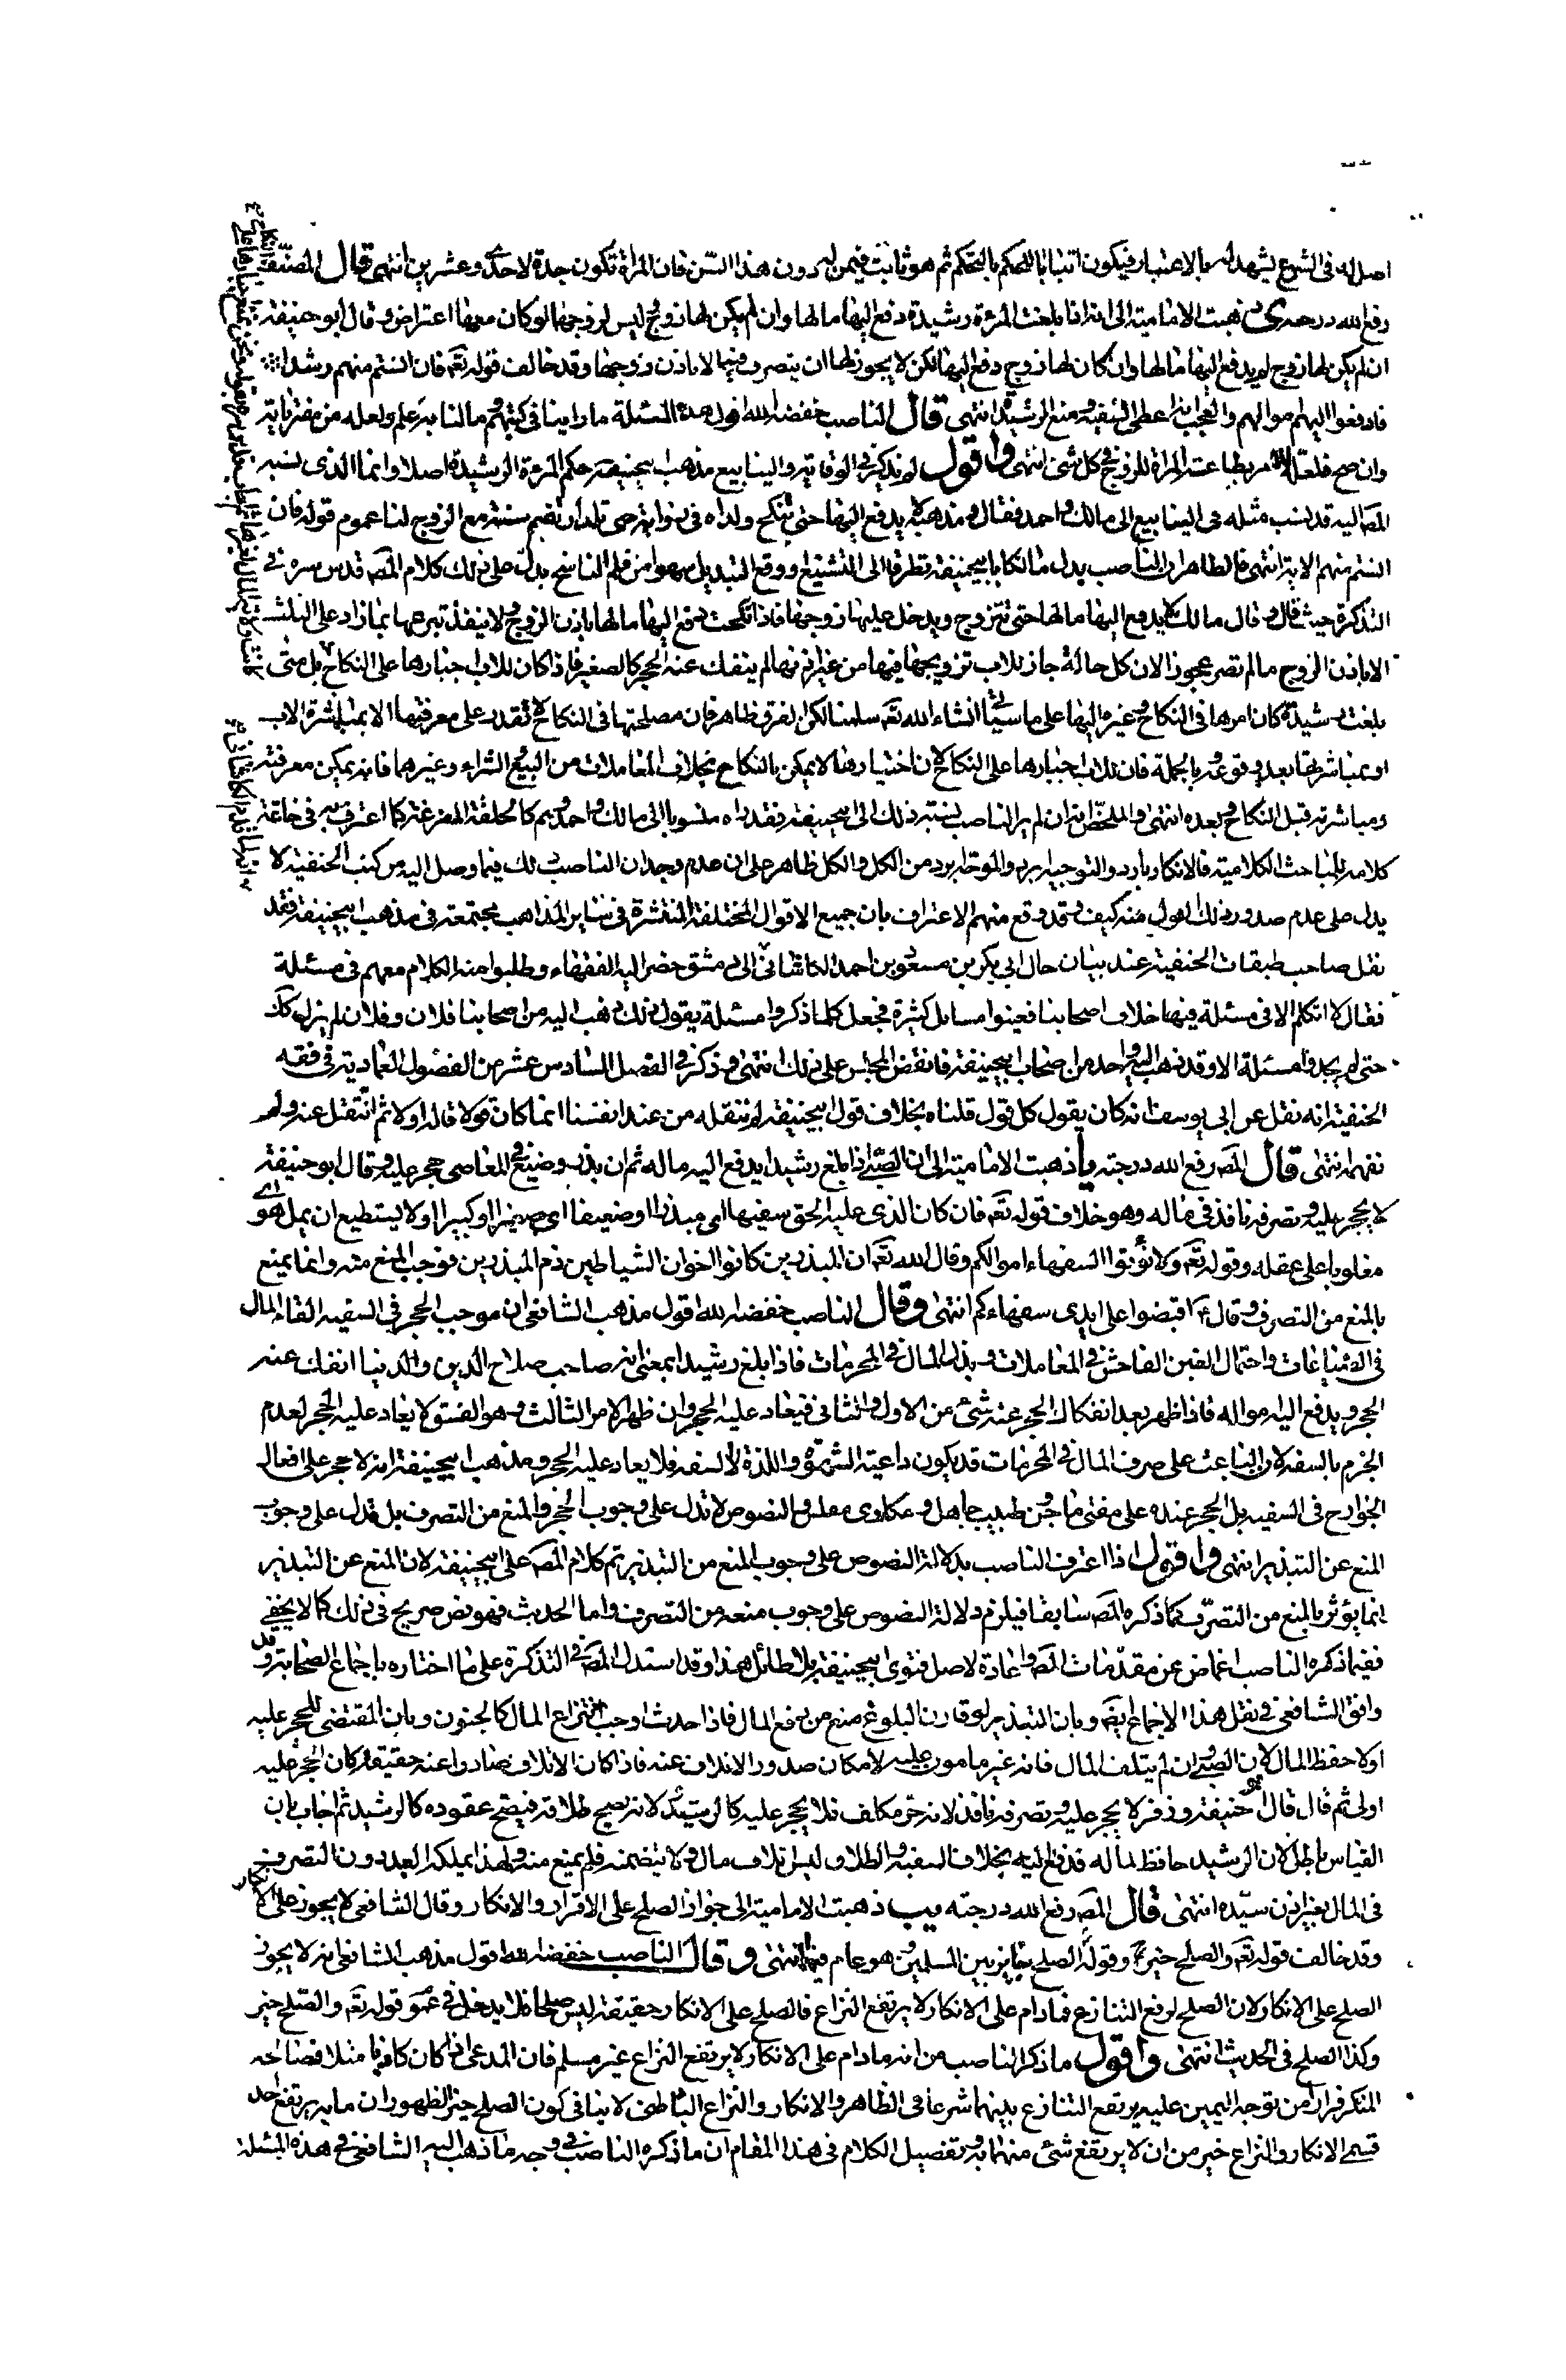 اصل له فى الشرع يشهد له بالاعتبار فيكون اثباتا للحكم بالتحكم ثم هو ثابت فيمن له دون هذا السن فان المراة تكون جدة لاحدى وعشرين انتهى قال المصنف
رفع الله درجته ى ذهبت الامامية الى انه اذا بلغت المرءة رشيدة دفع اليها مالها وان لم يكن لها زوج وليس لزوجها لو كان معها اعتراض وقال ابو حنيفة
ان لم يكن لها زوج لم يدفع اليها مالها وان كان لها زوج دفع اليها لكن لا يجوز لها ان يتصرف فيها الا باذن زوجها وقد خالف قوله تعه فان انستم منهم رشدا
فادفعوا اليهم اموالهم والعجب انه اعطى السفيه ومنع الرشيد انتهى قال الناصب خفضه الله اقول هذه المسئلة ما راينا فى كتبهم وما لنا به علم ولعله من مفترياته
وان صح فلعله لامر بطاعة المراة للزوج فى كل شئ انتهى واقول لم يذكر فى الوقاية والينابيع مذهب ابيحنيفة حكم المرءة الرشيدة اصلا وانما الذى نسبه
المصه اليه قد نسب مثله فى الينابيع الى مالك واحمد فقال ومذهبه لا يدفع اليها حتى تنكح ولداه فى رواية حتى تلد او تضم سنة مع الزوج لنا عموم قوله فان
انستم منهم الاية انتهى فالظاهر ان الناصب بدل مالكا بابيحنيفة تطرقا الى التشنيع او وقع التبديل سهوا من قلم الناسخ يدل على ذلك كلام المصه قدس سره فى
التذكرة حيث قال وقال مالك لا يدفع اليها مالها حتى تتزوج ويدخل عليها زوجها فاذا نكحت دفع اليها مالها باذن الزوج ولا ينفذ تبرعها بما زاد على الثلث
الا باذن الزوج ما لم تصر عجوزا لان كل حالة جاز للاب تزويجها فيها من غير اذنها لم ينفك عنه الحجر كالصغيرة اذ كان للاب اجبارها على النكاح بل متى
بلغت رشيدة كان امرها فى النكاح وغيره اليها على ما سيأتى انشاء الله تعه سلمنا لكن الفرق ظاهر فان مصلحتها فى النكاح لا تقدر على معرفتها الا بمباشرة الاب
او بمباشرتها بعد وقوعه وبالجملة فان للاب اجبارها على النكاح لان اختيارها لا يمكن بالنكاح بخلاف المعاملات من البيع والشراء وغيرهما فانه يمكن معرفته
ومباشرته قبل النكاح وبعده انتهى والملخص انه ان لم ير الناصب نسبة ذلك الى ابيحنيفة فقد راه منسوبا الى مالك واحمد وهم كالحلقة المفرغة كما اعترف به فى خاتمة
كلامه للمباحث الكلامية فالانكار بارد والتوجيه ابرد من الكل والكل ظاهر على ان عدم وجدان الناصب ذلك فيما وصل اليه من كتب الحنفية لا
يدل على عدم صدور ذلك القول منه كيف وقد وقع منهم الاعتراف بان جميع الاقوال المختلفة المنتشرة فى سائر المذاهب مجتمعة فى مذهب ابيحنيفة فقد
نقل صاحب طبقات الحنفية عند بيان حال ابى بكر بن مسعود بن احمد الكاشانى انه فى دمشق حضر اليه الفقهاء وطلبوا منه الكلام معهم فى مسئلة
فقال لا اتكلم الا فى مسئلة فيها خلاف اصحابنا فعينوا مسايل كثيرة فجعل كلما ذكروا مسئلة يقول ذلك ذهب اليه من اصحابنا فلان وفلان لم يزل كك
حتى لم يجدوا مسئلة الا وقد ذهب اليه واحد من اصحاب ابيحنيفة فانفض المجلس على ذلك انتهى وذكر فى الفصل السادس عشر من الفصول العمادية فى فقه
الحنفية انه نقل عن ابى يوسف انه كان يقول كل قول قلناه بخلاف قول ابيحنيفة لم ننقله من عند انفسنا انما كان قولا قاله اولا ثم انتقل عنه ولم
نفهمه انتهى قال المصه رفع الله درجته يا ذهبت الامامية الى ان الصبى اذا بلغ رشيدا يدفع اليه ماله ثم ان بذر وضيع فى المعاصى حجر عليه وقال ابو حنيفة
لا يحجر عليه وتصرفه نافذ فى ماله وهو خلاف قوله تعه فان كان الذى عليه الحق سفيها اى مبذرا او ضعيفا اى صغيرا او كبيرا او لا يستطيع ان يمل هو اى
مغلوبا على عقله وقوله تعه ولا تؤتوا السفهاء اموالكم وقال الله تعه ان المبذرين كانوا اخوان الشياطين ذم المبذرين فوجب المنع منه وانما يمنع
بالمنع من التصرف وقال ع اقبضوا على ايدى سفهاءكم انتهى وقال الناصب خفضه الله اقول مذهب الشافعى ان موجب الحجر فى السفيه القاء المال
فى الضياعات واحتمال الغبن الفاحش فى المعاملات وبذل المال فى المحرمات فاذا بلغ رشيدا بمعنى انه صاحب صلاح الدين والدنيا انفك عنه
الحجر ويدفع اليه امواله فاذا ظهر بعد انفكاك الحجر عنه شئ من الاول والثانى فيعاد عليه الحجر وان ظهر الامر الثالث وهو الفسق لا يعاد عليه الحجر لعدم
الجزم بالسفه لان الباعث على صرف المال فى المحرمات قد يكون داعية الشهوة واللذة لا السفه فلا يعاد عليه الحجر ومذهب ابيحنيفة انه لا حجر على افعال
الجوارح فى السفيه بل الحجر عنده على مفتى ماجن وطبيب جاهل ومكارى مفلس والنصوص لا تدل على وجوب الحجر والمنع من التصرف بل تدل على وجوب
المنع عن التبذير انتهى واقول اذا اعترف الناصب بدلالة النصوص على وجوب المنع من التبذير تم كلام المصه على ابيحنيفة لان المنع عن التبذير
انما يؤثر بالمنع من التصرف كما ذكره المصه سابقا فيلزم دلالة النصوص على وجوب منعه من التصرف واما الحديث فهو نص صريح فى ذلك كما لا يخفى
ففيما ذكره الناصب اغماض عن مقدمات المصه واعادة لاصل فتوى ابيحنيفة بلا طائل هذا وقد استدل المصه فى التذكرة على ما اختاره باجماع الصحابة وقد
وافق الشافعى فى نقل هذا الاجماع ايضه وبان التبذير لو قارن البلوغ منع من دفع المال فاذا حدث اوجب انتزاع المال كالجنون وبان المقتضى للحجر عليه
اولا حفظ المال لان الصبى وان لم يتلف المال فانه غير مامور عليه لامكان صدور الاتلاف عنه فاذا كان الاتلاف صادرا عنه حقيقة كان الحجر عليه
اولى ثم قال قال ابو حنيفة وزفر لا يحجر عليه وتصرفه نافذ لانه حر مكلف فلا يحجر عليه كالرشيد لانه يصح طلاقه فيصح عقوده كالرشيد ثم اجاب بان
القياس باطل لان الرشيد حافظ لماله فدفع اليه بخلاف السفيه والطلاق ليس باتلاف مال ولا يتضمنه فلم يمنع منه ولهذا يملكه العبد دون التصرف
فى المال بغير اذن سيده انتهى قال المصه رفع الله درجته يب ذهبت الامامية الى جواز الصلح على الاقرار والانكار وقال الشافعى لا يجوز على الانكار
وقد خالف قوله تعه والصلح خير وقوله ع الصلح جايز بين المسلمين وهو عام فيهما انتهى وقال الناصب خفضه الله اقول مذهب الشافعى انه لا يجوز
الصلح على الانكار لان الصلح لرفع التنازع فما دام على الانكار لا يرتفع النزاع فالصلح على الانكار حقيقة ليس صلحا فلا يدخل فى عموم قوله تعه والصلح خير
وكذا الصلح فى الحديث انتهى واقول ما ذكره الناصب من انه ما دام على الانكار لا يرتفع النزاع غير مسلم فان المدعى اذا كان كاذبا مثلا فصالحه
المنكر فرارا من توجه اليمين عليه يرتفع التنازع بينهما شرعا فى الظاهر والانكار والنزاع الباطنى لا ينافى كون الصلح خير الظهور ان ما به يرتفع احد
قسمى الانكار والنزاع خير من ان لا يرتفع شئ منهما به وتفصيل الكلام فى هذا المقام ان ما ذكره الناصب فى وجه ما ذهب اليه الشافعى فى هذه المسئلة